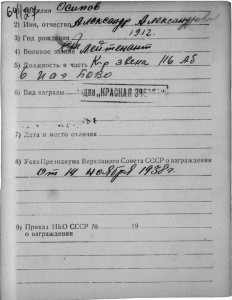 64/127
Фамилия Осипов
2) Имя, отчество Александр Александрович
3) Год рождения 1912.
4) Военное звание лейтенант
5) Должность и часть К-р звена 116 АБ
6) Вид награды "КРАСНАЯ ЗВЕЗДА"
7) Дата и место отличия
8) Указ Президиума Верховного Совета СССР о награждении
От 14 ноября 1938г.
9) Приказ НКО СССР № 19
о награждении